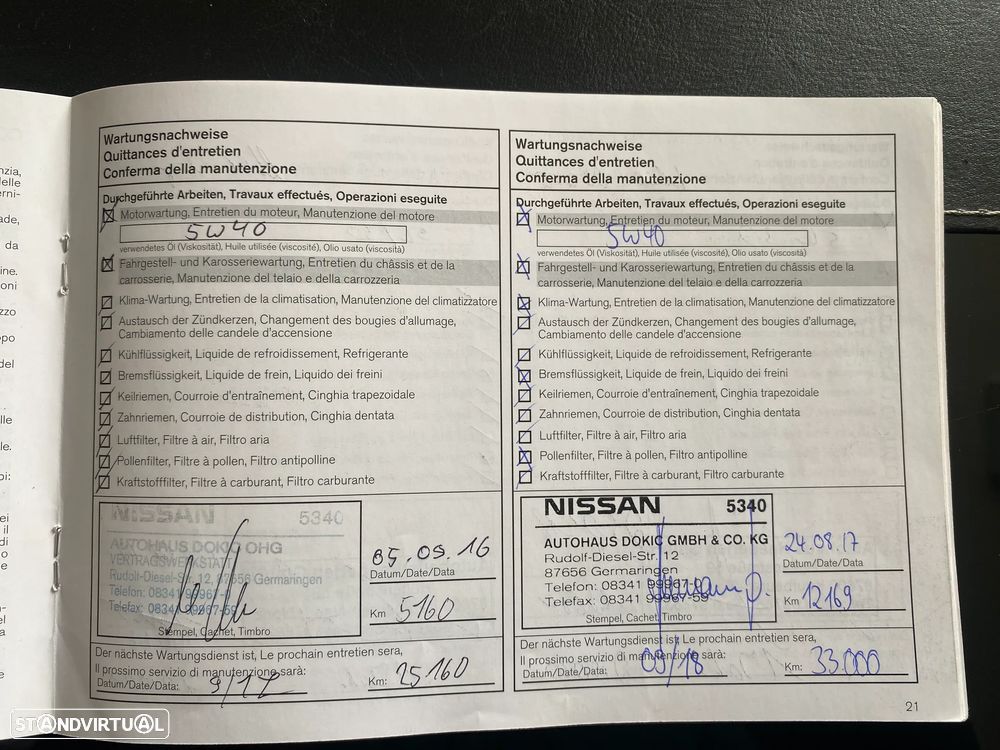 nzia,
delle
erni-
ade,
da
ine.
ioni
zzo
opo
del
lle
le.
pi:
ei
il
di
o
e
Wartungsnachweise
Quittances d'entretien
Conferma della manutenzione
Durchgeführte Arbeiten, Travaux effectués, Operazioni eseguite
Motorwartung, Entretien du moteur, Manutenzione del motore
5W40
verwendetes Öl (Viskosität), Huile utilisée (viscosité), Olio usato (viscosità)
Fahrgestell- und Karosseriewartung, Entretien du châssis et de la
carrosserie, Manutenzione del telaio e della carrozzeria
Klima-Wartung, Entretien de la climatisation, Manutenzione del climatizzatore
Austausch der Zündkerzen, Changement des bougies d'allumage,
Cambiamento delle candele d'accensione
Kühlflüssigkeit, Liquide de refroidissement, Refrigerante
Bremsflüssigkeit, Liquide de frein, Liquido dei freini
Keilriemen, Courroie d'entraînement, Cinghia trapezoidale
Zahnriemen, Courroie de distribution, Cinghia dentata
Luftfilter, Filtre à air, Filtro aria
Pollenfilter, Filtre à pollen, Filtro antipolline
Kraftstofffilter, Filtre à carburant, Filtro carburante
NISSAN 5340
AUTOHAUS DOKIC OHG
VERTRAGSWERKSTATT
Rudolf-Diesel-Str. 12, 87656 Germaringen
Telefon: 08341 99967-0
Telefax: 08341 99967-59
Stempel, Cachet, Timbro
05.09.16
Datum/Date/Data
Km 5160
Der nächste Wartungsdienst ist, Le prochain entretien sera,
Il prossimo servizio di manutenzione sarà:
Datum/Date/Data: 9/17 Km: 25160
Wartungsnachweise
Quittances d'entretien
Conferma della manutenzione
Durchgeführte Arbeiten, Travaux effectués, Operazioni eseguite
Motorwartung, Entretien du moteur, Manutenzione del motore
5W40
verwendetes Öl (Viskosität), Huile utilisée (viscosité), Olio usato (viscosità)
Fahrgestell- und Karosseriewartung, Entretien du châssis et de la
carrosserie, Manutenzione del telaio e della carrozzeria
Klima-Wartung, Entretien de la climatisation, Manutenzione del climatizzatore
Austausch der Zündkerzen, Changement des bougies d'allumage,
Cambiamento delle candele d'accensione
Kühlflüssigkeit, Liquide de refroidissement, Refrigerante
Bremsflüssigkeit, Liquide de frein, Liquido dei freini
Keilriemen, Courroie d'entraînement, Cinghia trapezoidale
Zahnriemen, Courroie de distribution, Cinghia dentata
Luftfilter, Filtre à air, Filtro aria
Pollenfilter, Filtre à pollen, Filtro antipolline
Kraftstofffilter, Filtre à carburant, Filtro carburante
NISSAN 5340
AUTOHAUS DOKIC GMBH & CO. KG
Rudolf-Diesel-Str. 12
87656 Germaringen
Telefon: 08341 99967-0
Telefax: 08341 99967-59
Stempel, Cachet, Timbro
24.08.17
Datum/Date/Data
Km 12169
Der nächste Wartungsdienst ist, Le prochain entretien sera,
Il prossimo servizio di manutenzione sarà:
Datum/Date/Data: 08/18 Km: 33.000
21
STANDVIRTUAL